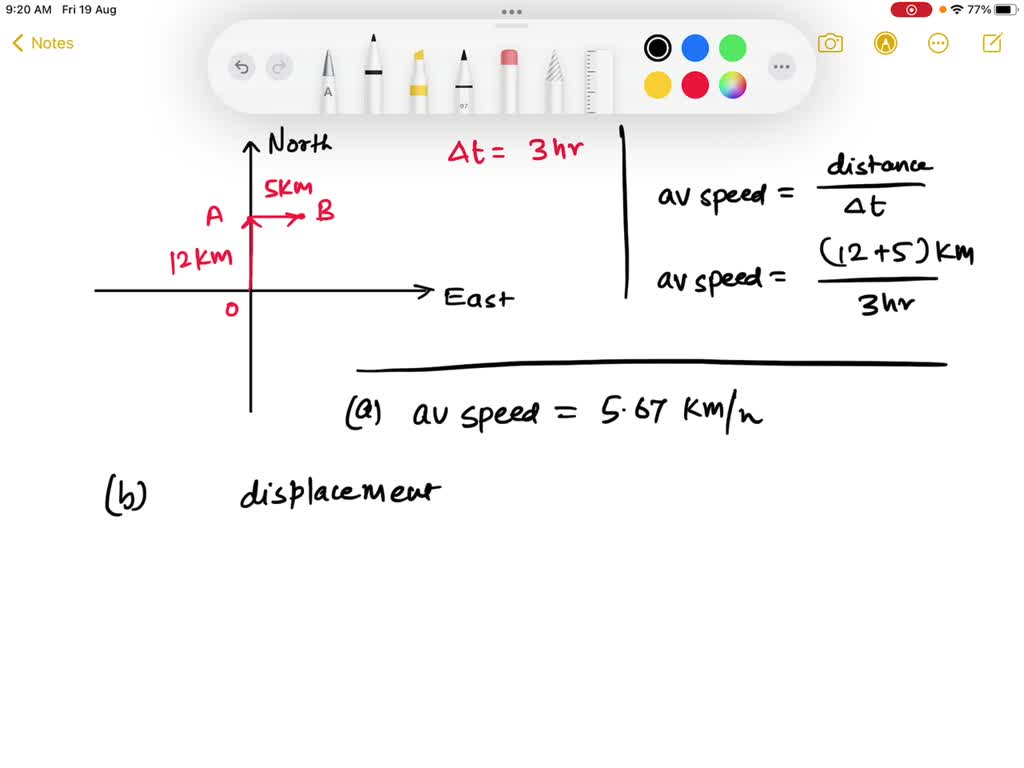 9:20 AM Fri 19 Aug
77%
Notes
A
97
North
Δt = 3hr
5Km
A
B
12Km
East
O
av speed = distance / Δt
av speed = (12+5) Km / 3hr
(a) av speed = 5.67 Km/h
(b) displacement